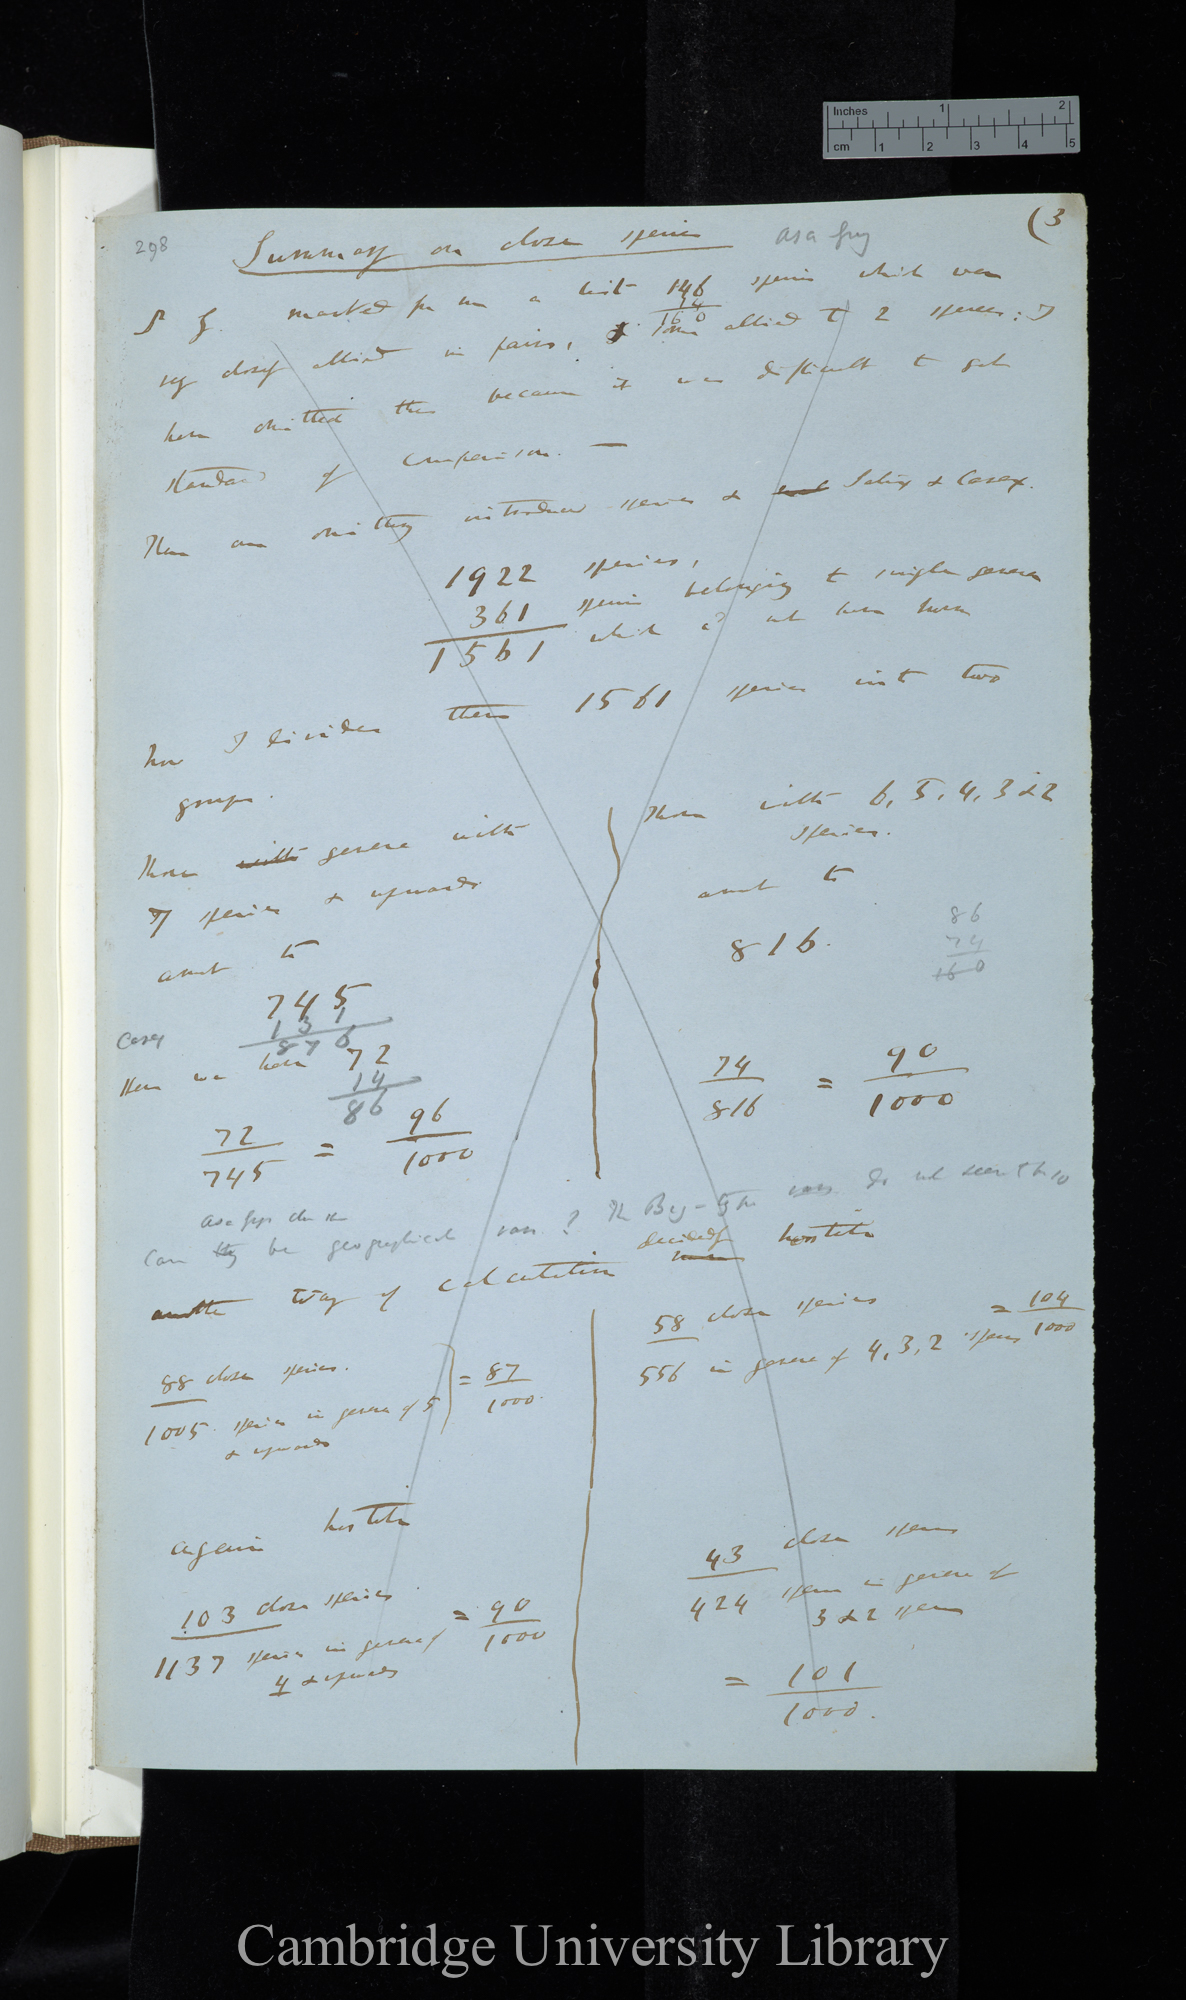 Inches 1 2
cm 1 2 3 4 5
298
(3
Summary on close species Asa Gray
marked for me a list 146 species which were
14
160
very closely allied in pairs, some allied to 2 species: I
have omitted these because it was difficult to get
standard of comparison. —
There are omitting introduced species & Salix & Carex.
1922 species,
361 species belonging to single genera
1561 which cd not have have
Now I divided these 1561 species into two
groups.
Those with genera with
7 species & upwards
amt to
745
131
Carex 876
Here we have 72
14
86
72 = 96
745 1000
Those with 6, 5, 4, 3 & 2
species.
amt to
816.
86
74
160
74 = 90
816 1000
Asa Gray
Can they be geographical races? The do not seem to
another way of calculation decidedly hostile
88 close species. = 87
1005 species in genera of 5 1000.
& upwards
58 close species = 104
556 in genera of 4, 3, 2 species 1000
again hostile
103 close species = 90
1137 species in genera of 1000
4 & upwards
43 close species
424 species in genera of
3 & 2 species
= 101
1000.
Cambridge University Library